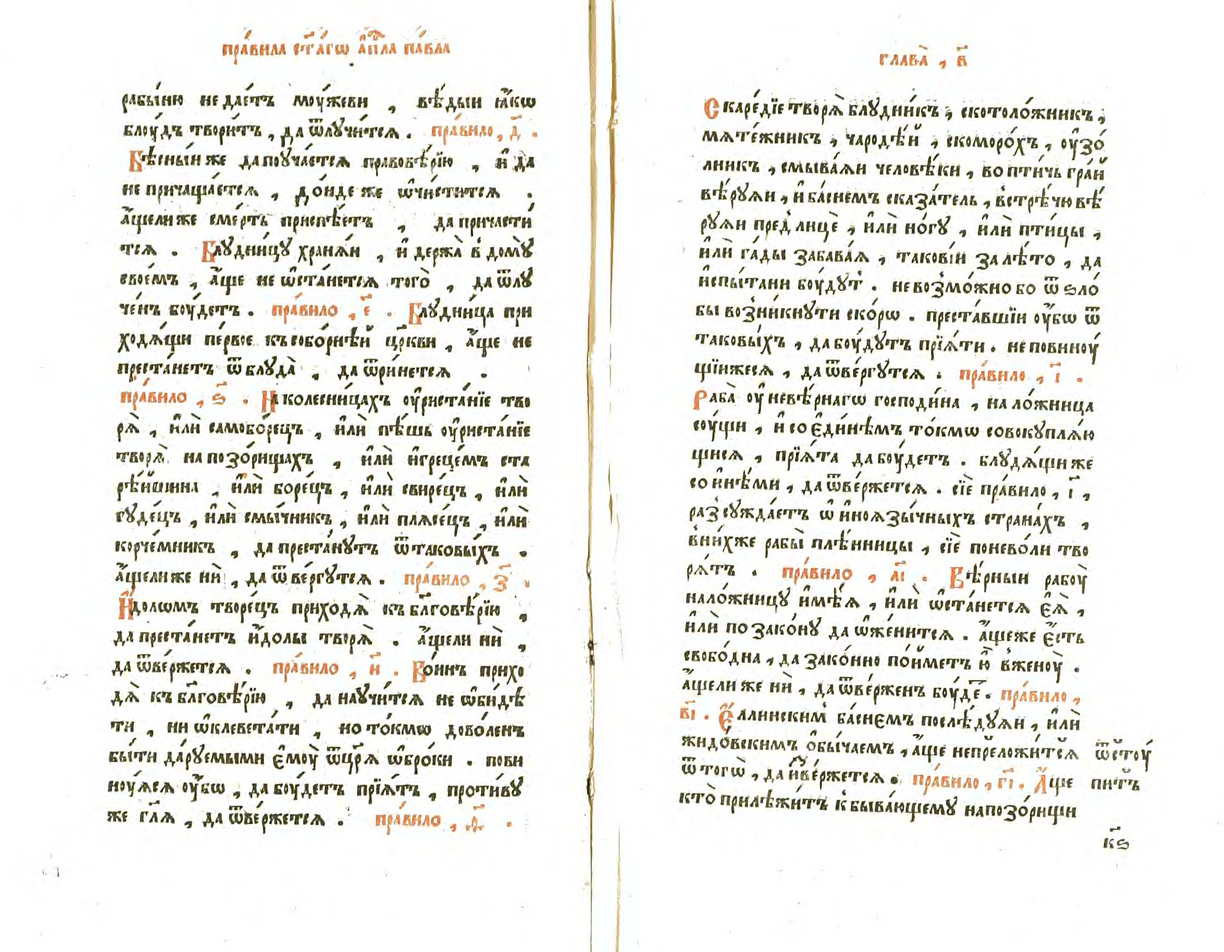 пра́вила ст҃а́гѡ а҆пⷭ҇ла па́вла
рабы́ню не дае́тъ моу́жеви , вѣ́дыи ꙗ҆́кѡ
блоу́дъ твори́тъ , да ѿлучи́тсѧ . пра́вило , д҃ .
Бѣ́сныи же да поуча́етсѧ правовѣ́рїю , и҆ да
не причаща́етсѧ , до́нде же ѡ҆чи́ститсѧ .
а҆́щели же сме́рть приспѣ́етъ , да причасти́
тсѧ . Блудни́цу хранѧ́и , и҆ держа̀ в до́му
свое́мъ , а҆́ще не ѡ҆ста́нетсѧ того̀ , да ѿлу
че́нъ боу́детъ . пра́вило , є҃ . Блудни́ца при
ходѧ́щи пе́рвое къ собо́рнѣй цр҃кви , а҆́ще не
преста́нетъ ѿ блуда̀ , да ѿри́нетсѧ .
пра́вило , ѕ҃ . На колесни́цахъ оу҆риста́нїе тво
рѧ̀ , и҆лѝ самобо́рецъ , и҆лѝ пѣ́шь оу҆риста́нїе
творѧ̀ на позо́рищахъ , и҆лѝ и҆грецє́мъ ста
рѣ́йшина , и҆лѝ боре́цъ , и҆лѝ свире́цъ , и҆лѝ
гуде́цъ , и҆лѝ смы́чникъ , и҆лѝ плѧсе́цъ , и҆лѝ
корче́мникъ , да преста́нутъ ѿ таковы́хъ .
а҆́щели же нѝ , да ѿве́ргутсѧ . пра́вило , з҃ .
И҆́долѡмъ творе́цъ приходѧ̀ къ бл҃говѣ́рїю ,
да преста́нетъ и҆́долы творѧ̀ . а҆́щели нѝ ,
да ѿве́ржетсѧ . пра́вило , и҃ . Во́инъ прихо
дѧ̀ къ бл҃говѣ́рїю , да научи́тсѧ не ѡ҆би́дѣ
ти , ни ѡ҆клевета́ти , но то́кмѡ дово́ленъ
бы́ти да́руемыми є҆моу̀ ѿ цр҃ѧ̀ ѡ҆бро́ки . пови
ноу́ѧсѧ оу҆́бѡ , да боу́детъ прїѧ́тъ , проти́ву
же гл҃ѧ , да ѿве́ржетсѧ . пра́вило , ѳ҃ .
глава̀ , в҃
Скаре́дїе творѧ̀ блудни́къ , скотоло́жникъ ,
мѧте́жникъ , чародѣ́й , скоморо́хъ , оу҆зо́
лникъ , смыва́ѧи человѣ́ки , во пти́чь гра́й
вѣ́руѧи , и҆ ба́снемъ сказа́тель , встрѣ́чю вѣ́
руѧи пред̾ лицѐ , и҆лѝ но́гу , и҆лѝ пти́цы ,
и҆лѝ га́ды забавлѧ́ѧ , такові́и за лѣ́то , да
и҆спы́тани боу́дутъ . не возмо́жно бо ѿ ѕло́
бы возни́кнути ско́рѡ . преста́вшїи оу҆́бѡ ѿ
таковы́хъ , да боу́дутъ прїѧ́ти . не повиноу́
щїижесѧ , да ѿве́ргутсѧ . пра́вило , і҃ .
Раба̀ оу҆ невѣ́рнагѡ господи́на , нало́жница
соу́щи , и҆ со є҆ди́нѣмъ то́кмѡ совокуплѧ́ю
щисѧ , прїѧ́та да боу́детъ . блудѧ́щи же
со и҆нѣ́ми , да ѿве́ржетсѧ . сїѐ пра́вило , і҃ ,
разсужда́етъ ѡ҆ и҆ноѧзы́чныхъ страна́хъ ,
в ни́хже рабы̀ плѣ́нницы , сїѐ понево́ли тво
рѧ́тъ . пра́вило , аі҃ . Вѣ́рныи рабоу̀
нало́жницу и҆мѣ́ѧ , и҆лѝ ѡ҆ста́нетсѧ є҆ѧ̀ ,
и҆лѝ по зако́ну да ѡ҆же́нитсѧ . а҆́щеже є҆́сть
свобо́дна , да зако́нно по́йметъ ю҆̀ в женоу̀ .
а҆́щели же нѝ , да ѿве́рженъ боу́деⷮ . пра́вило ,
ві҃ . Е҆́ллинским̾ ба́снемъ послѣ́дуѧи , и҆лѝ
жидо́вскимъ ѻ҆бы́чаемъ , а҆́ще не прело́житсѧ ѿстоу́
ѿ тогѡ̀ , да и҆зве́ржетсѧ . пра́вило , гі҃ . А҆́ще пи́тъ
кто̀ прилѣжи́тъ к быва́ющему на позо́рищи
к҃ѕ